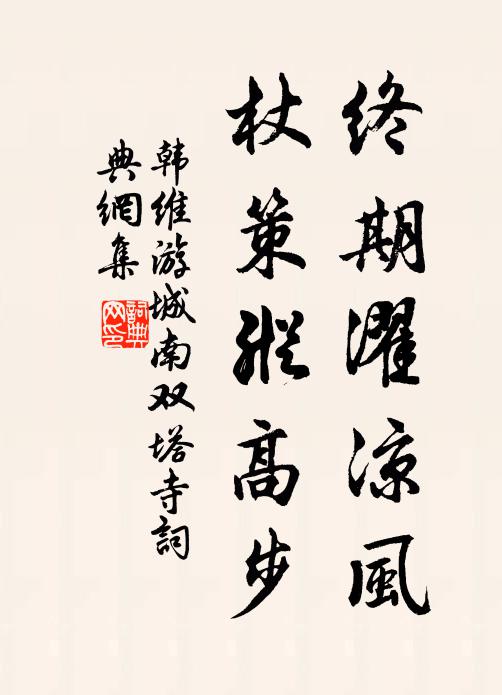 终期濯凉風
杖策縱高步
韩维游城南双塔寺詞
典網集
詞典
网印